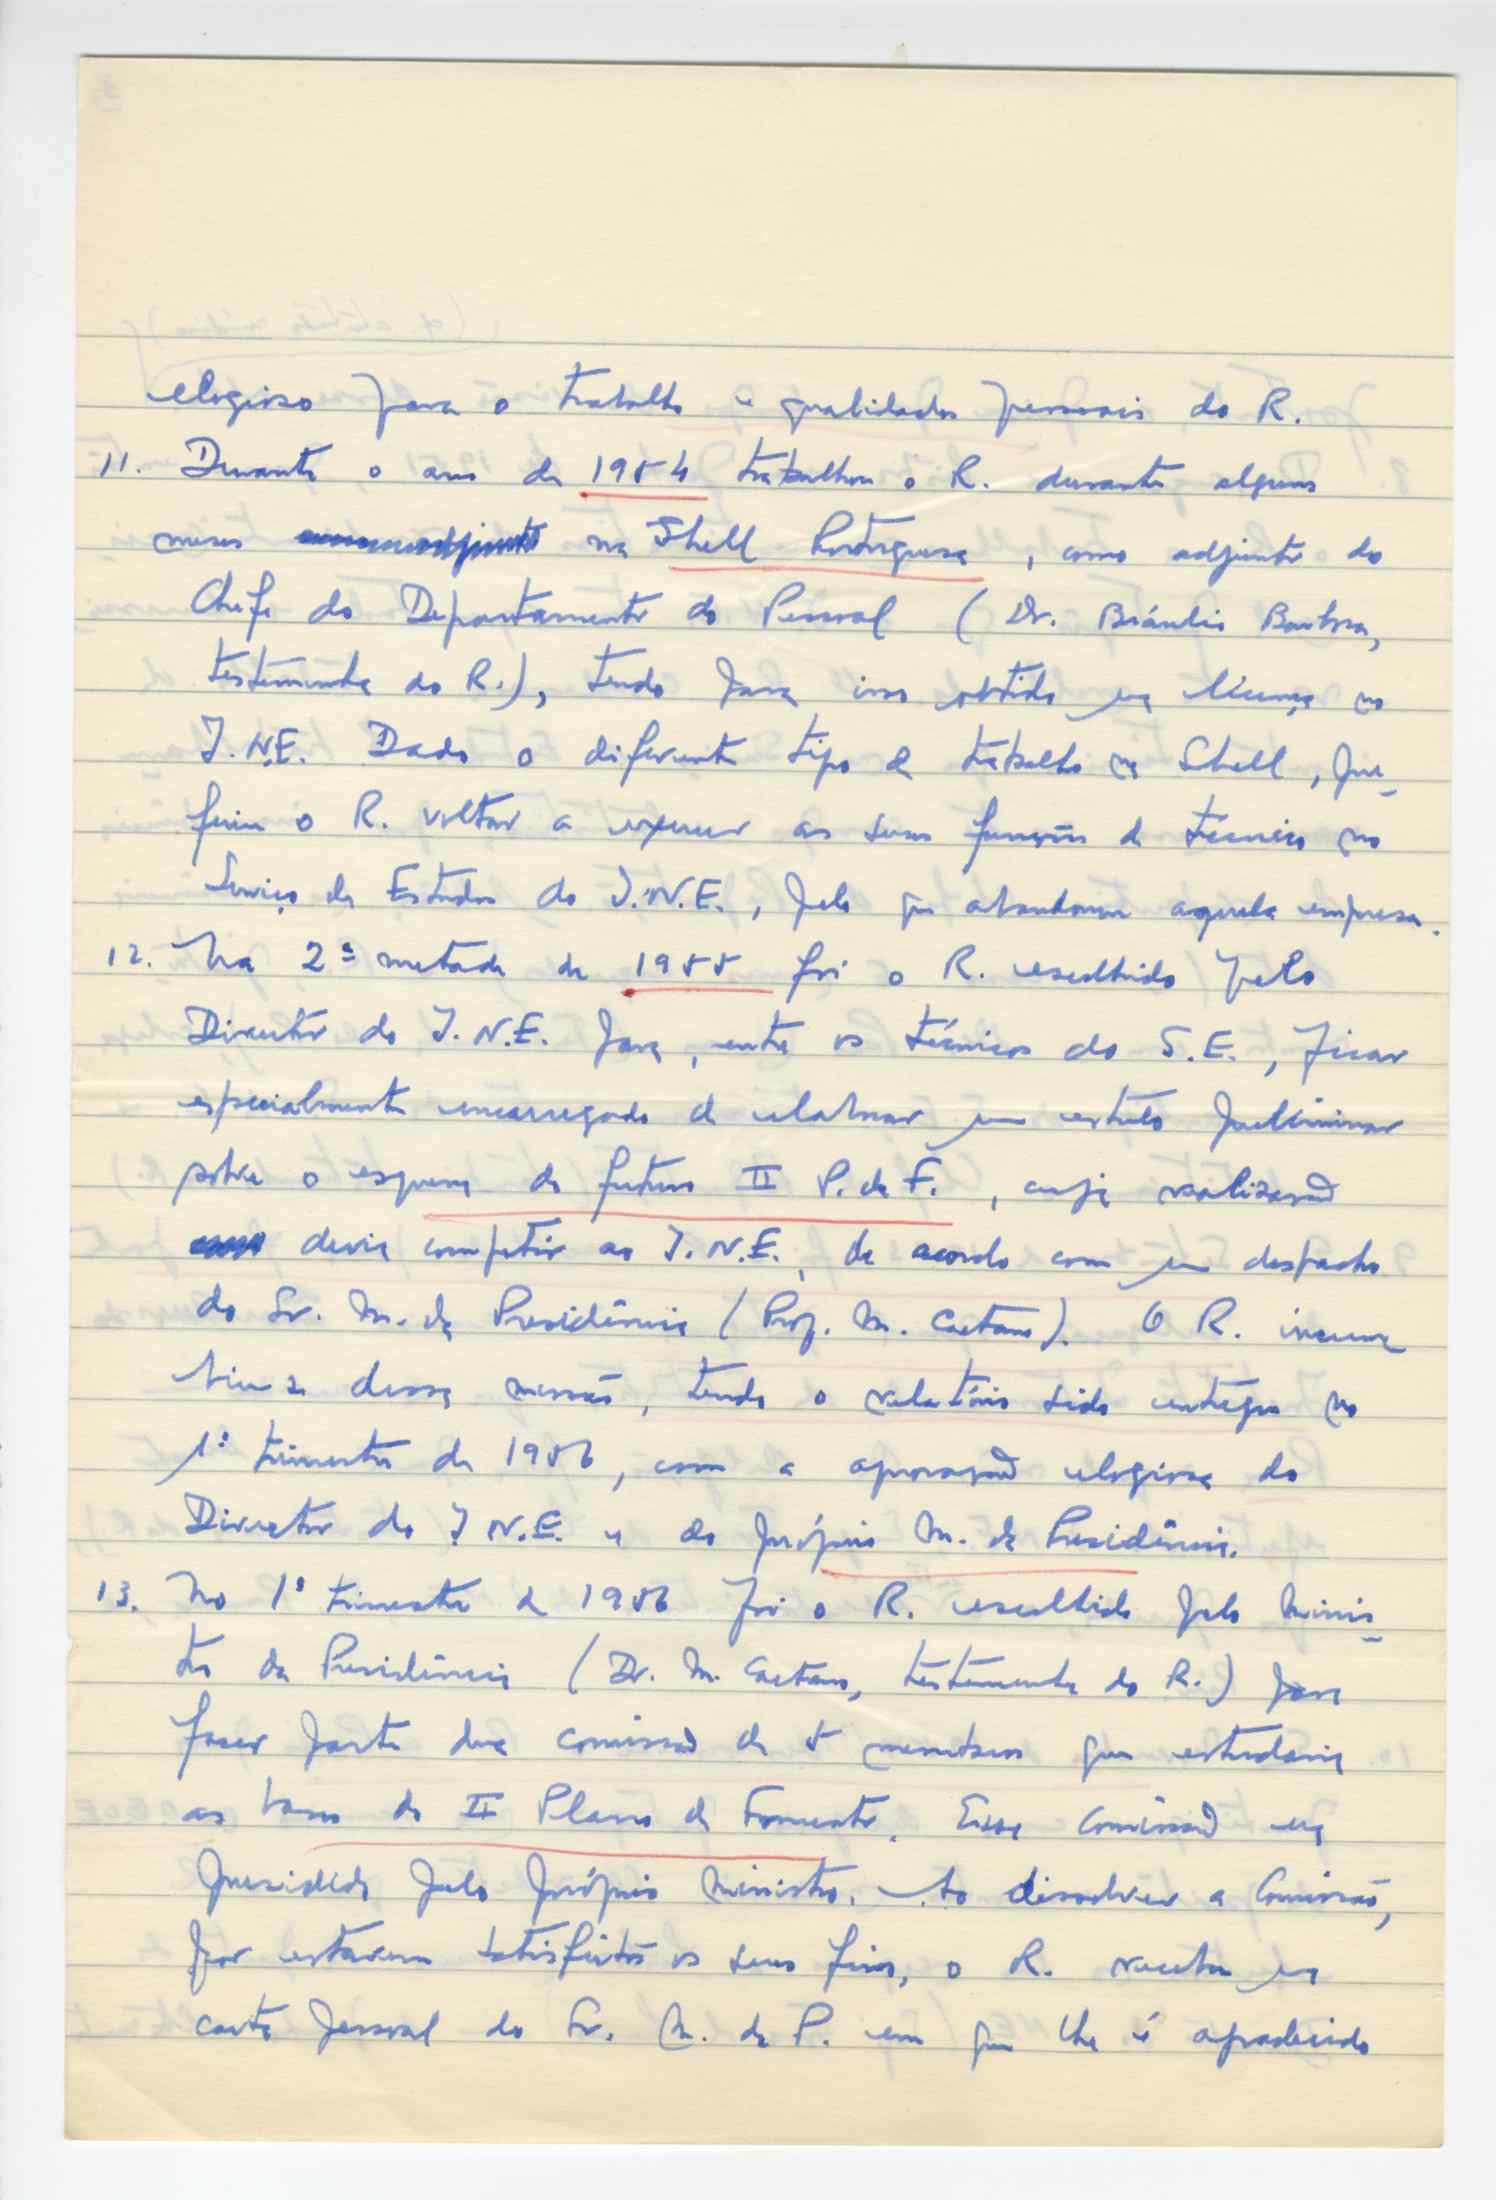 elogioso para o trabalho e qualidades pessoais do R.
11. Durante o ano de 1954 trabalhou o R. durante alguns
meses na Shell Portuguesa, como adjunto do
Chefe do Departamento do Pessoal (Dr. Bráulio Barbosa,
testemunha do R.), tendo para isso obtido uma licença no
I.N.E. Dado o diferente tipo de trabalho na Shell, pre-
feriu o R. voltar a exercer as suas funções de técnico no
Serviço de Estudos do I.N.E., pelo que abandonou aquela empresa.
12. Na 2ª metade de 1955 foi o R. escolhido pelo
Director do I.N.E. para, entre os técnicos do S.E., ficar
especialmente encarregado de elaborar um estudo preliminar
sobre o esquema do futuro II P. de F., cuja realização
devia competir ao I.N.E., de acordo com um despacho
do Sr. M. da Presidência (Prof. M. Caetano). O R. incum
biu-se dessa missão, tendo o relatório sido entregue no
1º trimestre de 1956, com a aprovação elogiosa do
Director do I.N.E. e do próprio M. da Presidência.
13. No 1º trimestre de 1956 foi o R. escolhido pelo Minis-
tro da Presidência (Dr. M. Caetano, testemunha do R.) para
fazer parte duma comissão de 5 membros que estudaria
as bases do II Plano de Fomento. Essa Comissão era
presidida pelo próprio Ministro. Ao dissolver a Comissão,
por estarem satisfeitos os seus fins, o R. recebeu uma
carta pessoal do Sr. M. da P. em que lhe é agradecido